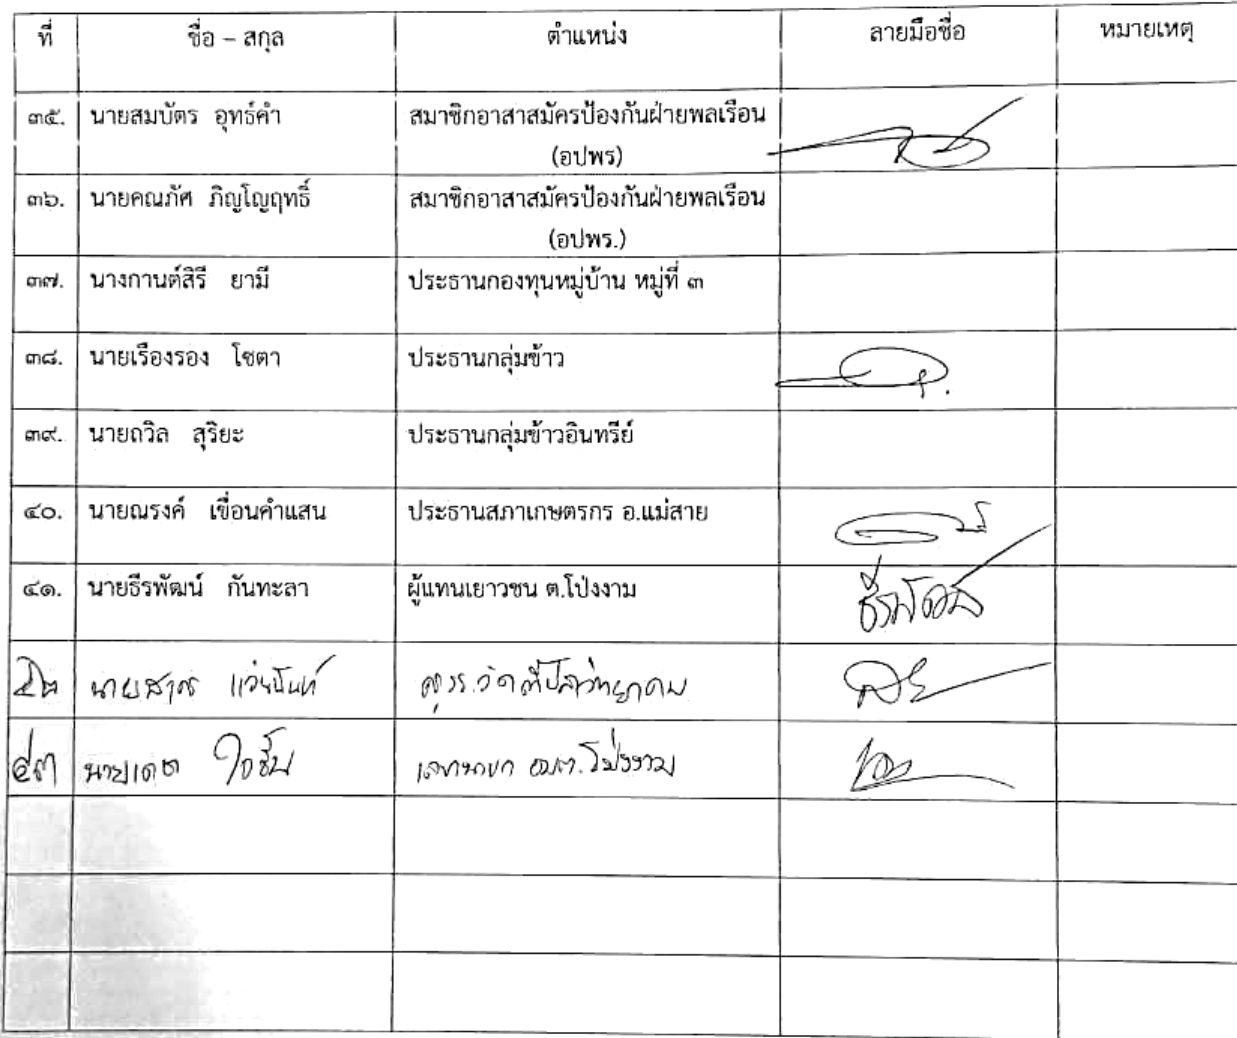 ที่ ชื่อ – สกุล ตำแหน่ง ลายมือชื่อ หมายเหตุ
๓๕. นายสมบัตร อุทธ์คำ สมาชิกอาสาสมัครป้องกันฝ่ายพลเรือน
(อปพร)
๓๖. นายคณภัศ ภิญโญฤทธิ์ สมาชิกอาสาสมัครป้องกันฝ่ายพลเรือน
(อปพร.)
๓๗. นางกานต์สิรี ยามี ประธานกองทุนหมู่บ้าน หมู่ที่ ๓
๓๘. นายเรืองรอง โชตา ประธานกลุ่มข้าว
๓๙. นายถวิล สุริยะ ประธานกลุ่มข้าวอินทรีย์
๔๐. นายณรงค์ เขื่อนคำแสน ประธานสภาเกษตรกร อ.แม่สาย
๔๑. นายธีรพัฒน์ กันทะลา ผู้แทนเยาวชน ต.โป่งงาม ธีรพัฒน์
๔๒ นาย
๔๓ นายเดช ใจชื้น เลขานายก อบต.โป่งงาม